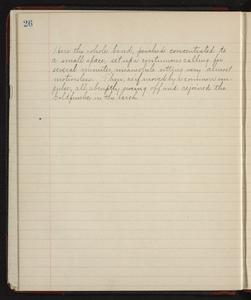 26
Here the whole band, perched concentrated to
a small space, set up a continuous calling for
several minutes, meanwhile sitting very almost
motionless. Then, as if moved by a common im-
pulse, all abruptly going off and rejoined the
Goldfinches in the larch.